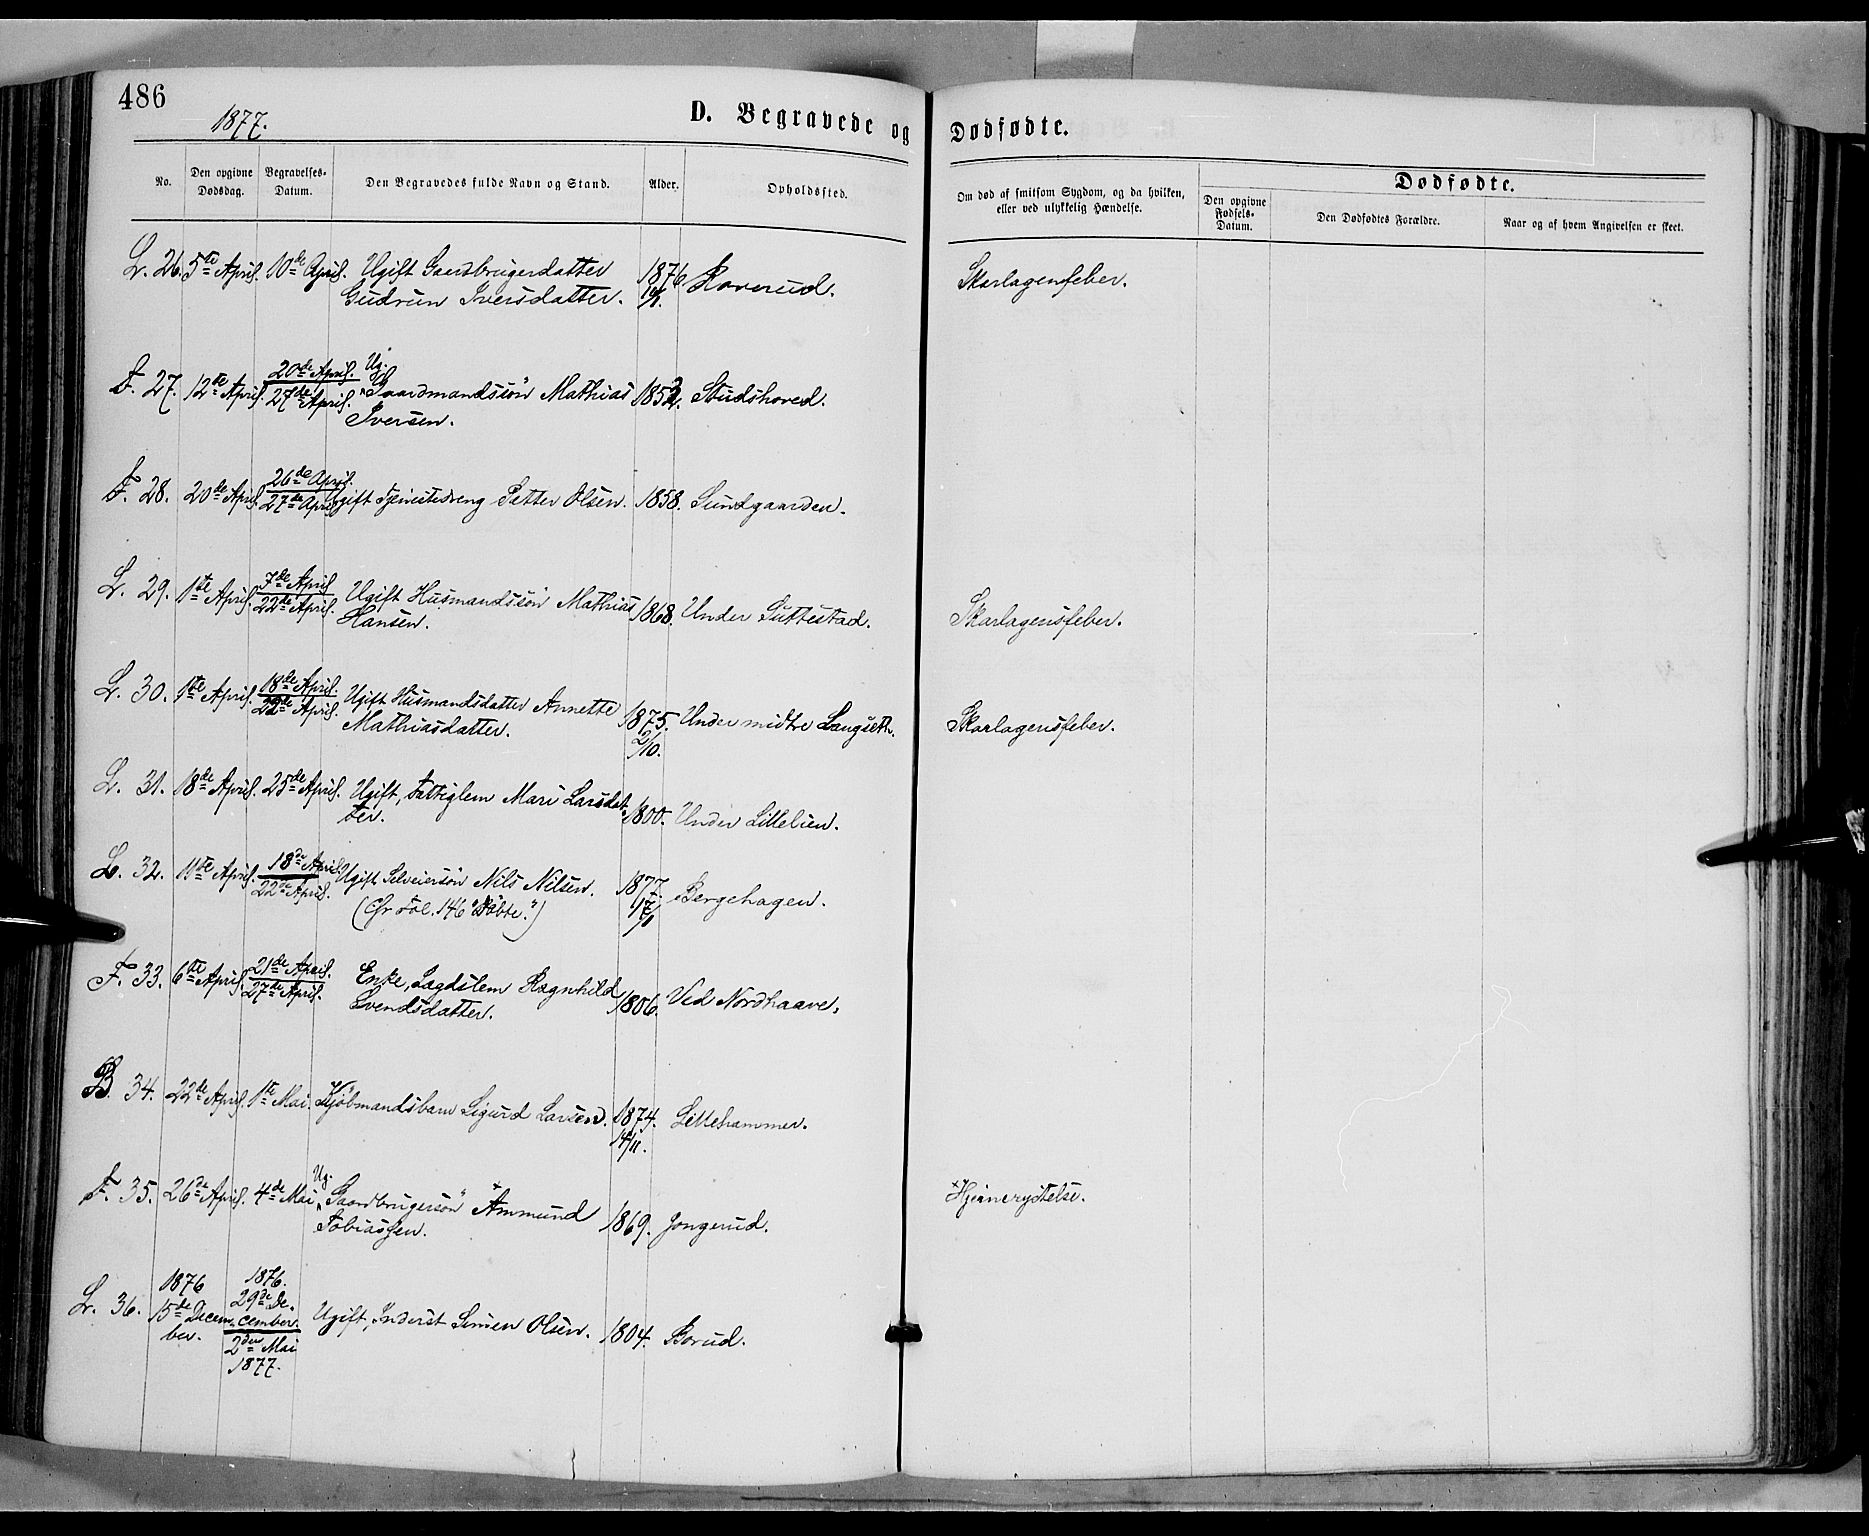 486
1877.
D. Begravede og Dødfødte.
No.
Den opgivne Dødsdag.
Begravelses-Datum.
Den Begravedes fulde Navn og Stand.
Alder.
Opholdssted.
Om død af smitsom Sygdom, og da hvilken,
eller ved ulykkelig Hændelse.
Dødfødte.
Den opgivne Fødsels-Datum.
Den Dødfødtes Forældre.
Naar og af hvem Angivelsen er skeet.
L. 26. 5te April. 10de April. Ugift Gaardbrugerdatter 1876 Roverud. Skarlagensfeber.
Gudrun Iversdatter.
F. 27. 12te April. 20de April. Ug.
27de April. "Gaardmandssøn" Mathias 1852. Studshoved.
Iversen.
F. 28. 20de April. 26de April.
27de April Ugift Tjenestedreng Petter Olsen. 1858. Sundgaarden.
L. 29. 1te April. 7de April
22de April. Ugift Husmandssøn Mathias 1868. Under Suttestad. Skarlagensfeber.
Hansen.
L. 30. 1te April. 18de April.
22de April. Ugift Husmandsdatter Annette 1875. Under midtre Langseth. Skarlagensfeber.
Mathiasdatter. 2/10.
L. 31. 18de April. 25de April. Ugift, Fattiglem Mari Larsdat-
ter. 1800. Under Lillelien.
L. 32. 11te April. 18de April.
22de April. Ugift Selveiersøn Nils Nilsen. 1877. Bergehagen.
(Cfr Fol. 146 "Døbte.") 17/1
F. 33. 6te April. 21de April.
27de April. Enke, Lægdslem Ragnhild 1806. Ved Nordhaave.
Svendsdatter.
B. 34. 22de April. 1te Mai. Kjøbmandsbarn Sigurd Larsen. 1874. Lillehammer.
14/11.
F. 35. 26de April. 4de Mai Ug. "Gaardbrugersøn" Ammund 1869. Jongerud. Hjernerystelse.
Tobiassen.
L. 36. 1876 15de Decem-
ber. 1876. 29de De-
cember.
2den Mai
1877. Ugift, Inderst Simen Olsen. 1804. Borud.